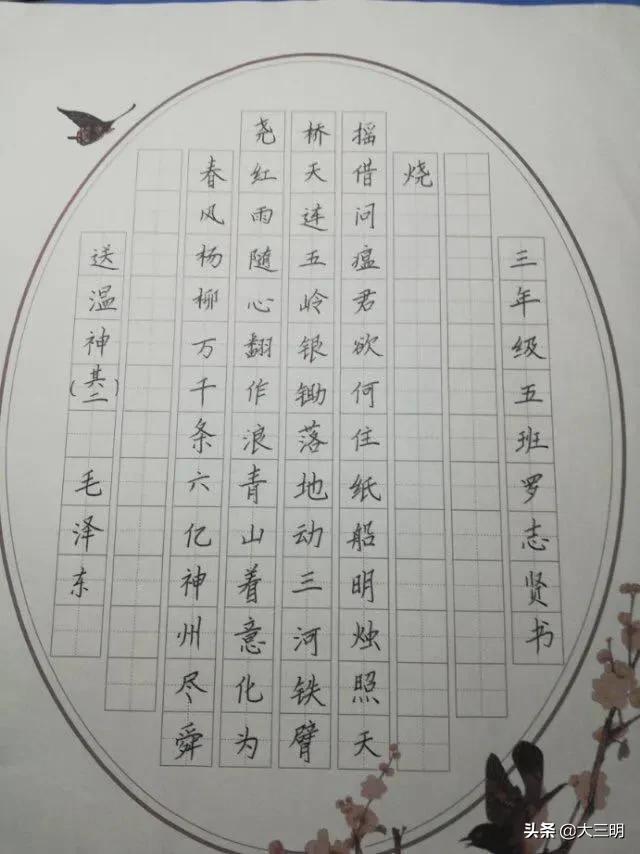 送温神(其二) 毛泽东
春风杨柳万千条六亿神州尽舜
尧红雨随心翻作浪青山着意化为
桥天连五岭银锄落地动三河铁臂
摇借问瘟君欲何住纸船明烛照天
烧
三年级五班罗志贤书
头条 @大三明